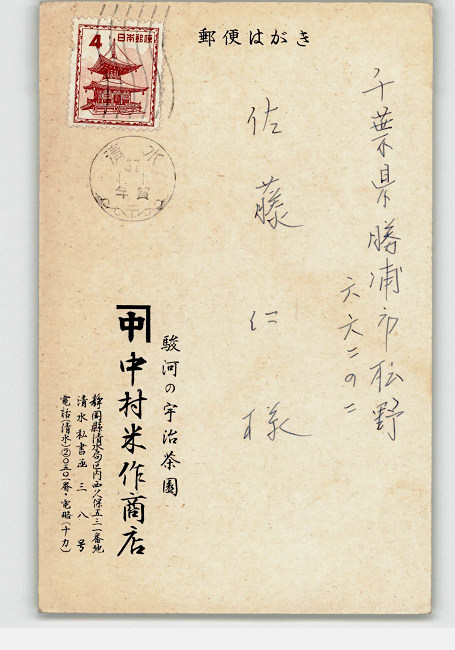 郵便はがき
4
日本郵便
清水
37
1.1
年賀
千葉県勝浦市松野
六六二の二
佐藤仁様
駿河の宇治茶園
中村米作商店
静岡縣清水局区内西久保五三一番地
清水私書函三八号
電話(清水)②〇五〇一番・電略(ナカ)